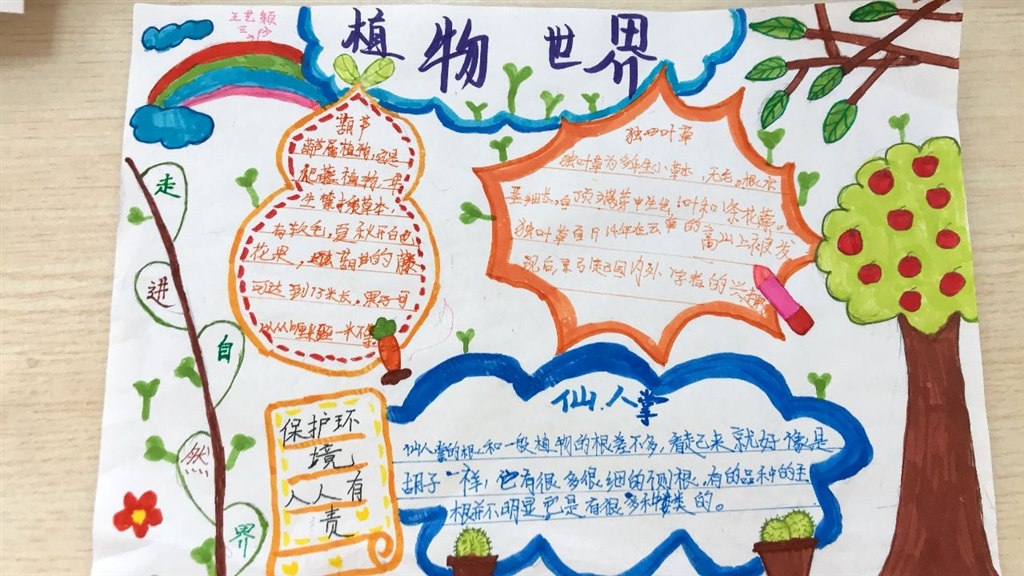 王艺颖
植物世界
走进自然界
葫芦
葫芦属植物,它是
爬藤植物,一年
生攀援草本,
有软毛,夏秋开白色
花果,葫芦的藤
可达到15米长,果子可
独叶草
独叶草为多年生小草本,无毛。根状
茎细长,自顶端芽中生
独叶草
高山上被发
现后,
学者的兴
仙人掌
仙人掌的根和一般植物的根差不多,看起来就好像是
胡子一样,它有很多很细的须根,有的品种的主
根并不明显它是有很多种类的。
保护环
境,
人人有
责